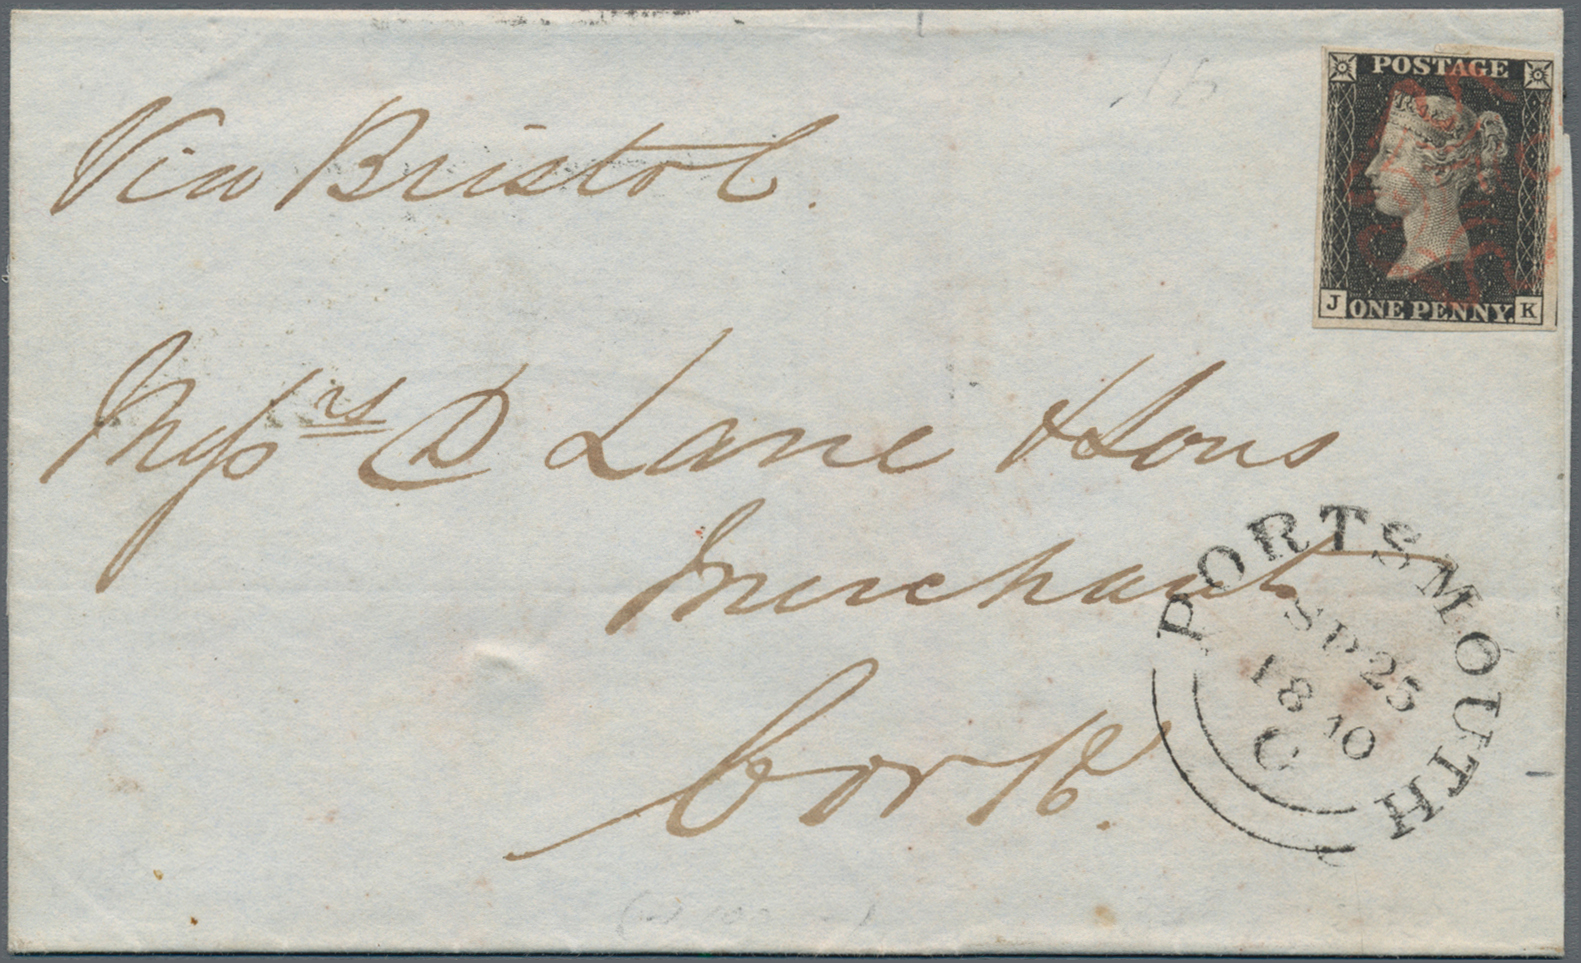 Via Bristol.
POSTAGE
J ONE PENNY. K
Messrs D Lane & Sons
Merchants
Cork.
PORTSMOUTH
SP 25
1840
C